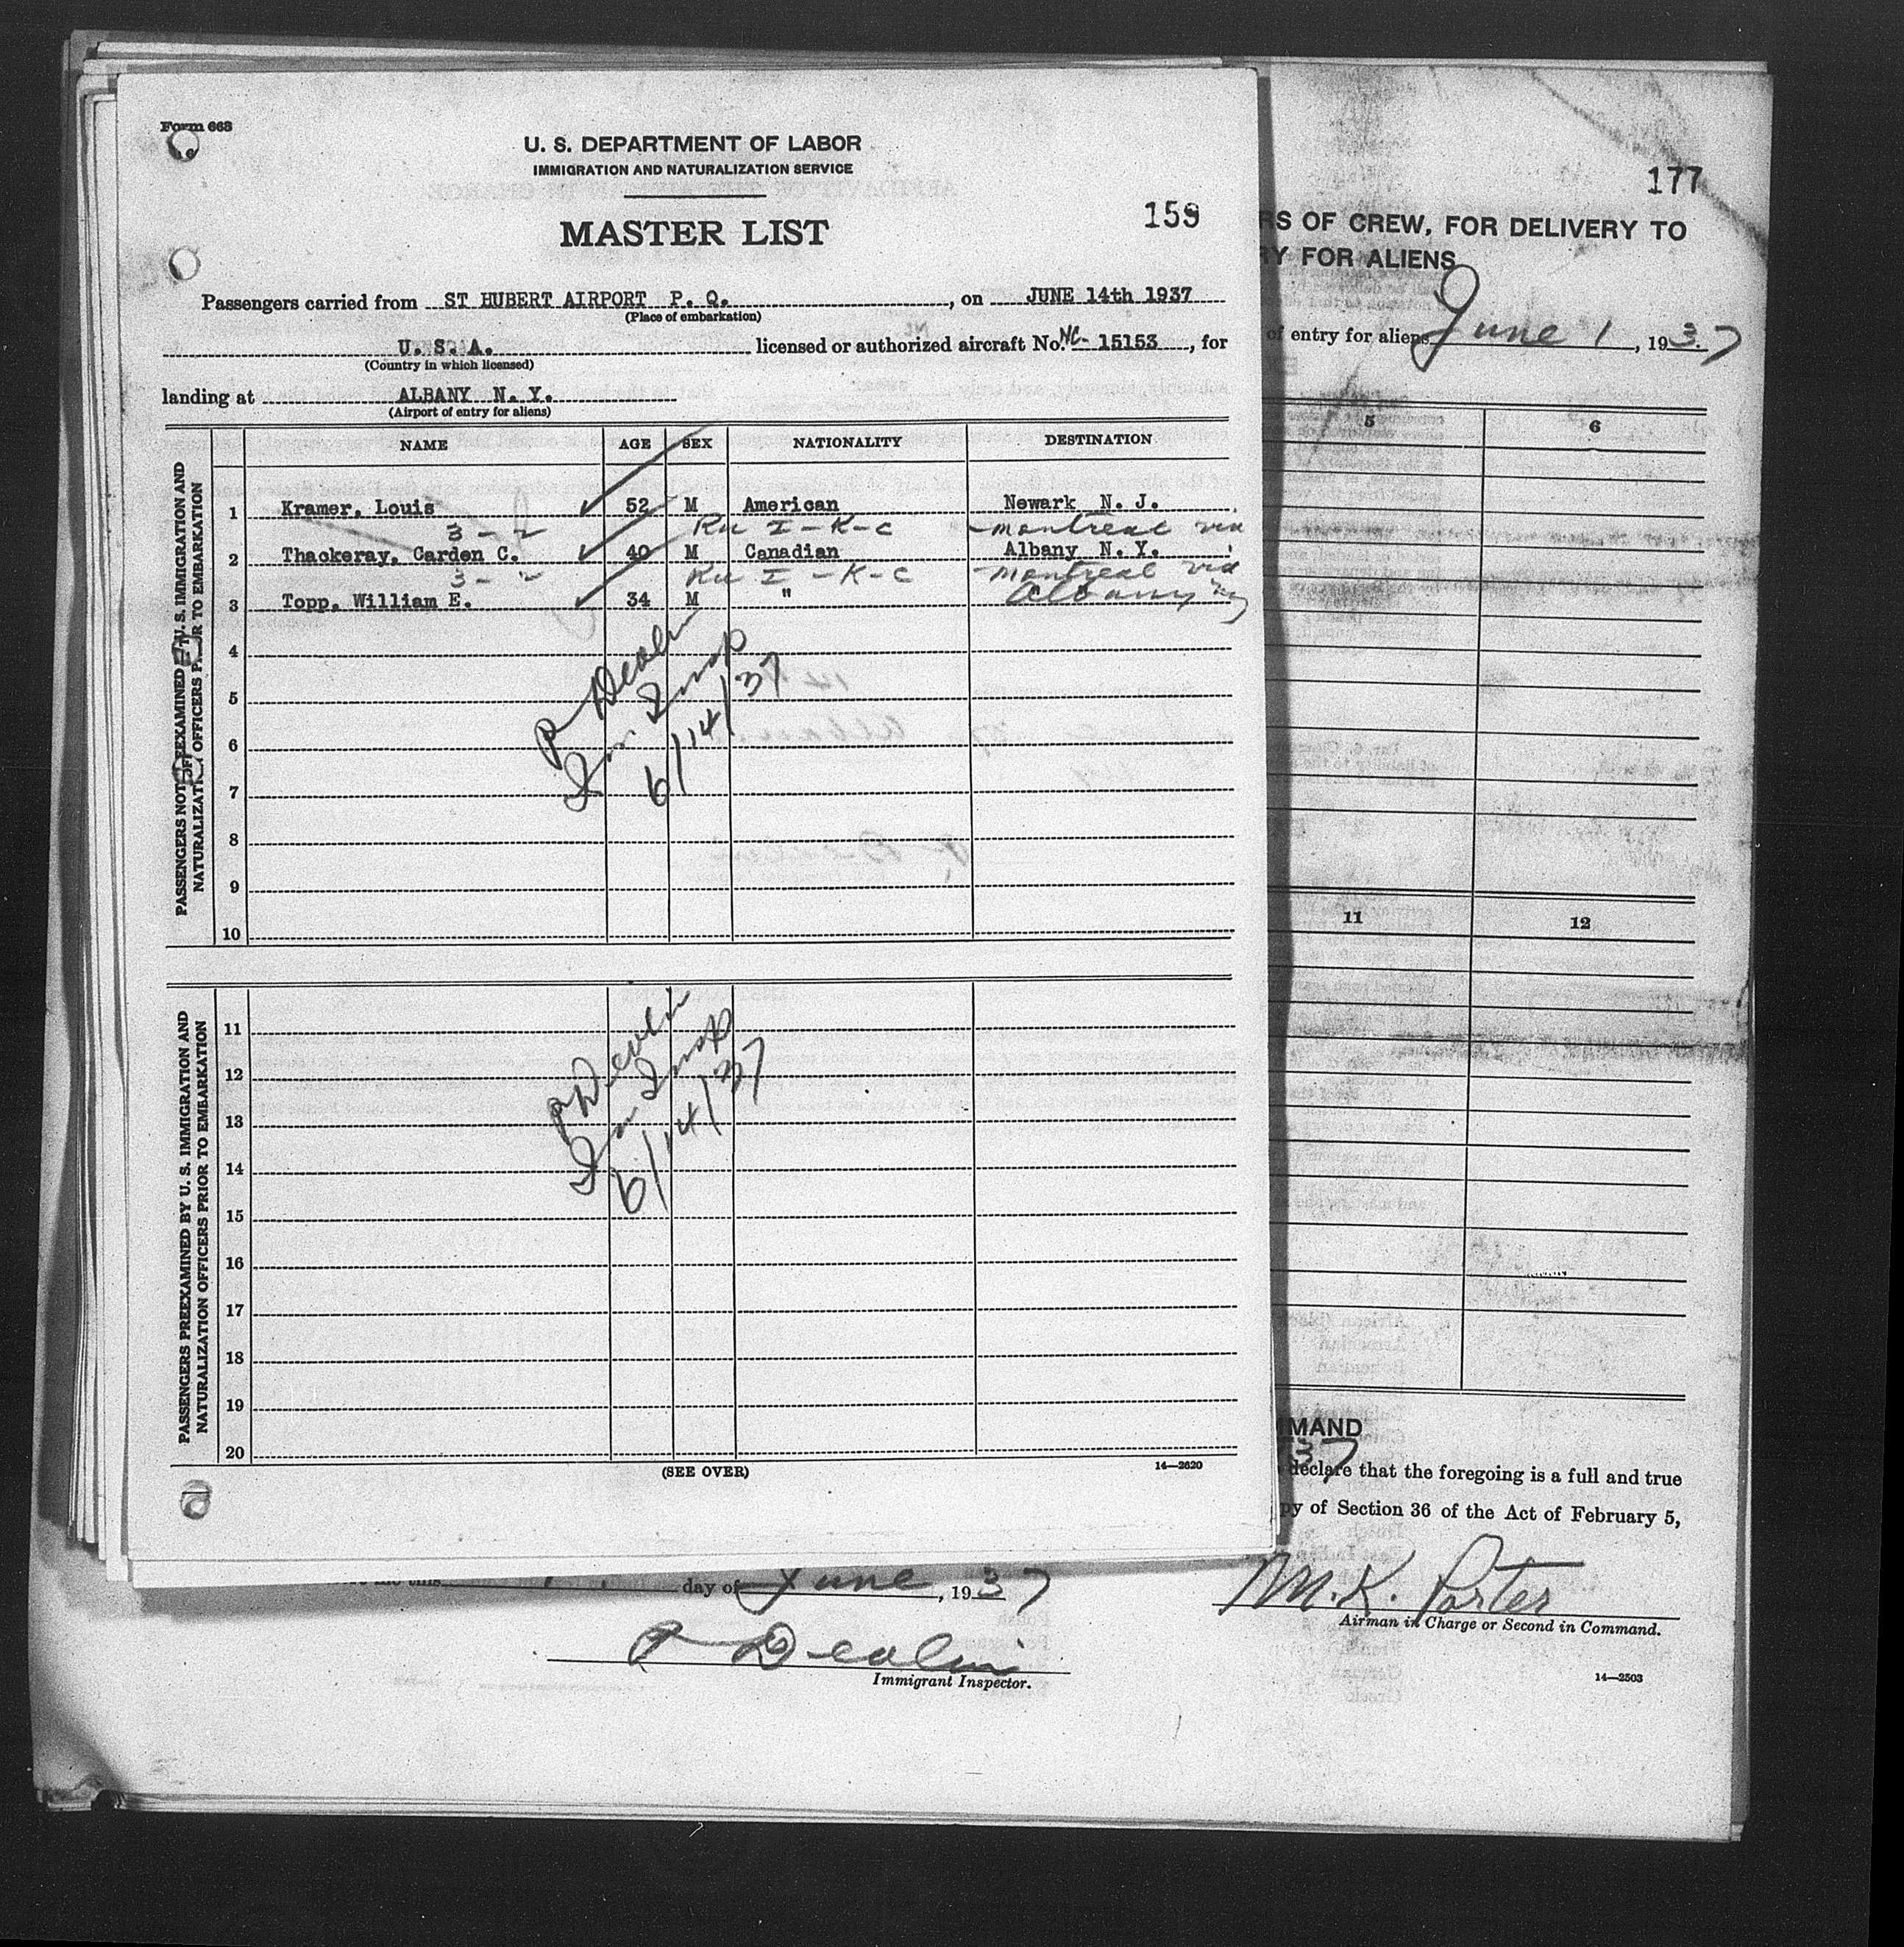 Form 668
U. S. DEPARTMENT OF LABOR
IMMIGRATION AND NATURALIZATION SERVICE
MASTER LIST
159
Passengers carried from ST HUBERT AIRPORT P. Q. , on JUNE 14th 1937
(Place of embarkation)
U. S. A. licensed or authorized aircraft No. NC- 15153 , for
(Country in which licensed)
landing at ALBANY N. Y.
(Airport of entry for aliens)
NAME AGE SEX NATIONALITY DESTINATION
PASSENGERS NOT PREEXAMINED BY U. S. IMMIGRATION AND
NATURALIZATION OFFICERS PRIOR TO EMBARKATION
1 Kramer, Louis 52 M American Newark N. J.
3 - I - K - C - Montreal via
2 Thackeray, Carden C. 40 M Canadian Albany N. Y.
3 - I - K - C - Montreal via
3 Topp, William E. 34 M " Albany NY
4
5
6
7
8
9
10
P Devlin
Imm Insp
6/14/37
PASSENGERS PREEXAMINED BY U. S. IMMIGRATION AND
NATURALIZATION OFFICERS PRIOR TO EMBARKATION
11
12
13
14
15
16
17
18
19
20
P Devlin
Imm Insp
6/14/37
(SEE OVER)
14—2620
177
RS OF CREW, FOR DELIVERY TO
RY FOR ALIENS
of entry for aliens June 1 , 1937
5 6
11 12
MMAND
37
declare that the foregoing is a full and true
py of Section 36 of the Act of February 5,
M. K. Porter
Airman in Charge or Second in Command.
day of June , 1937
P Devlin
Immigrant Inspector.
14—2503